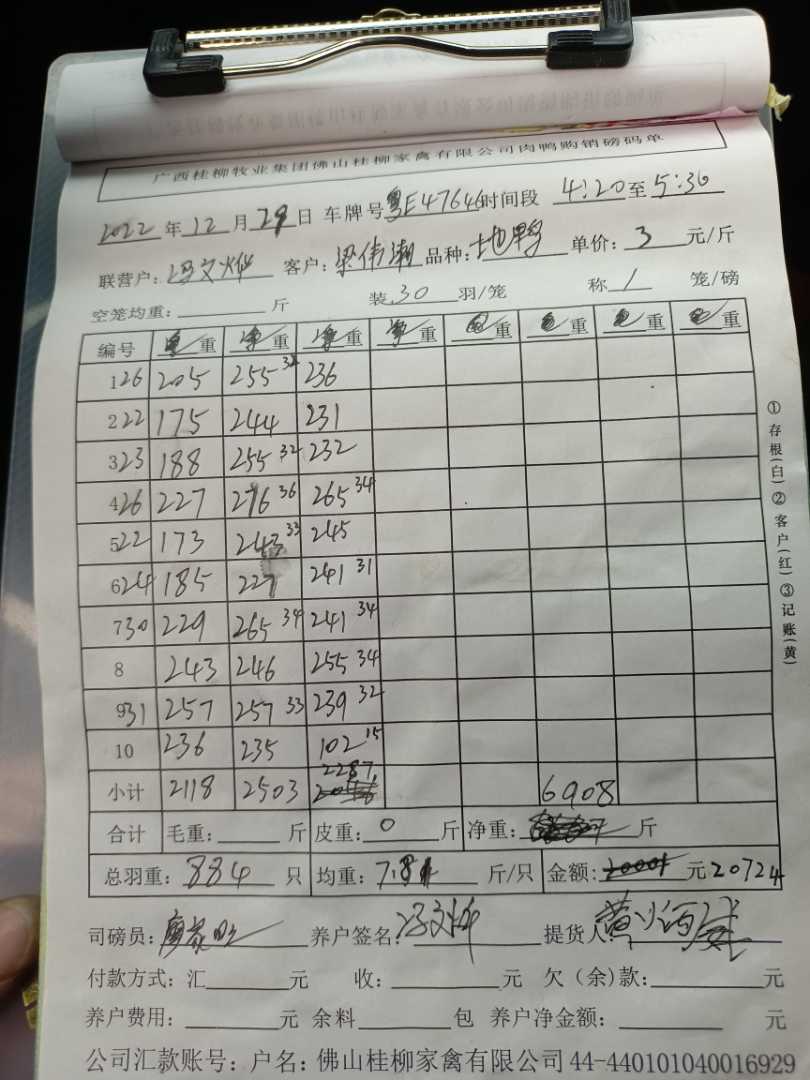 广西桂柳牧业集团佛山桂柳家禽有限公司肉鸭购销磅码单
2022 年 12 月 29 日 车牌号 粤E47646 时间段 4:20 至 5:30
联营户: 冯文灿 客户: 梁伟潮 品种: 地鸭 单价: 3 元/斤
空笼均重: 斤 装 30 羽/笼 称 1 笼/磅
编号 重 净重 净重 净重 重 重 重 重
1 26 205 255 32 236
2 22 175 244 231
3 23 188 255 32 232
4 26 227 276 36 265 34
5 22 173 243 33 245
6 24 185 227 241 31
7 30 229 265 34 241 34
8 243 246 255 34
9 31 257 257 33 239 32
10 236 235 102 15
小计 2118 2503 2287 6908
合计 毛重: 斤 皮重: 0 斤 净重: 斤
总羽重: 884 只 均重: 7.81 斤/只 金额: 元 20724
司磅员: 养户签名: 冯文灿 提货人:
付款方式: 汇 元 收: 元 欠(余)款: 元
养户费用: 元 余料 包 养户净金额: 元
公司汇款账号: 户名: 佛山桂柳家禽有限公司 44-440101040016929
①存根(白)②客户(红)③记账(黄)